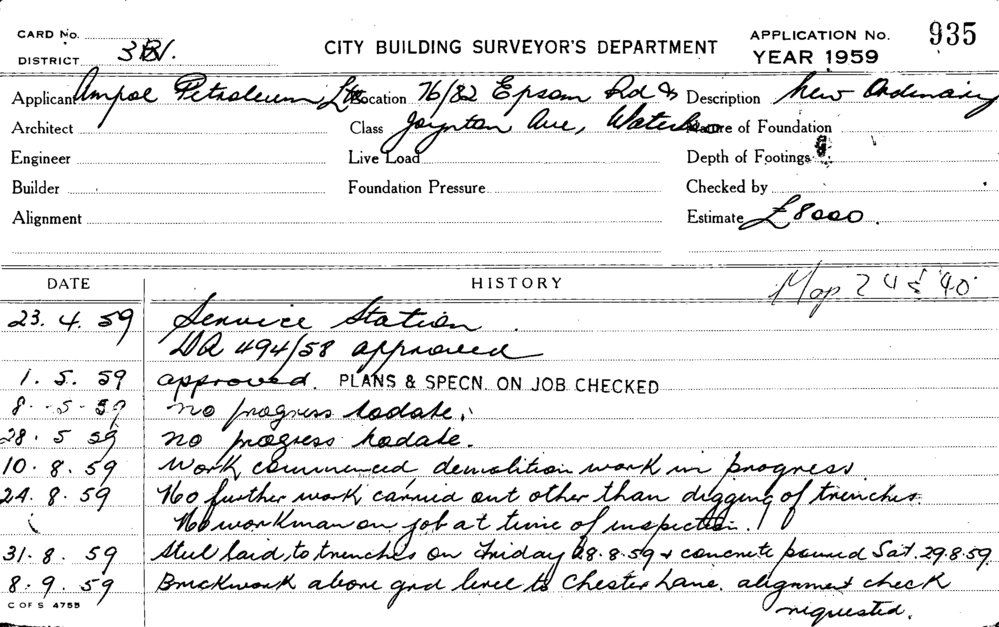 CARD No.
DISTRICT 3BV.
CITY BUILDING SURVEYOR'S DEPARTMENT
APPLICATION No. 935
YEAR 1959
Applicant Ampol Petroleum Ltd Location 76/82 Epsom Rd & Description New Ordinary
Architect Class Joynton Ave, Waterloo Nature of Foundation
Engineer Live Load Depth of Footings
Builder Foundation Pressure Checked by
Alignment Estimate £8000.
DATE HISTORY Map
23. 4. 59 Service Station
DA 494/58 approved
1. 5. 59 approved. PLANS & SPECN. ON JOB CHECKED
8. 5. 59 no progress todate.
28. 5 59 no progress todate.
10. 8. 59 Work commenced demolition work in progress
24. 8. 59 No further work carried out other than digging of trenches.
No workman on job at time of inspection.
31. 8. 59 Steel laid to trenches on Friday 28.8.59 & concrete poured Sat. 29.8.59.
8. 9. 59 Brickwork above grd level to Chester Lane. alignment check
requested.
C OF S 4755